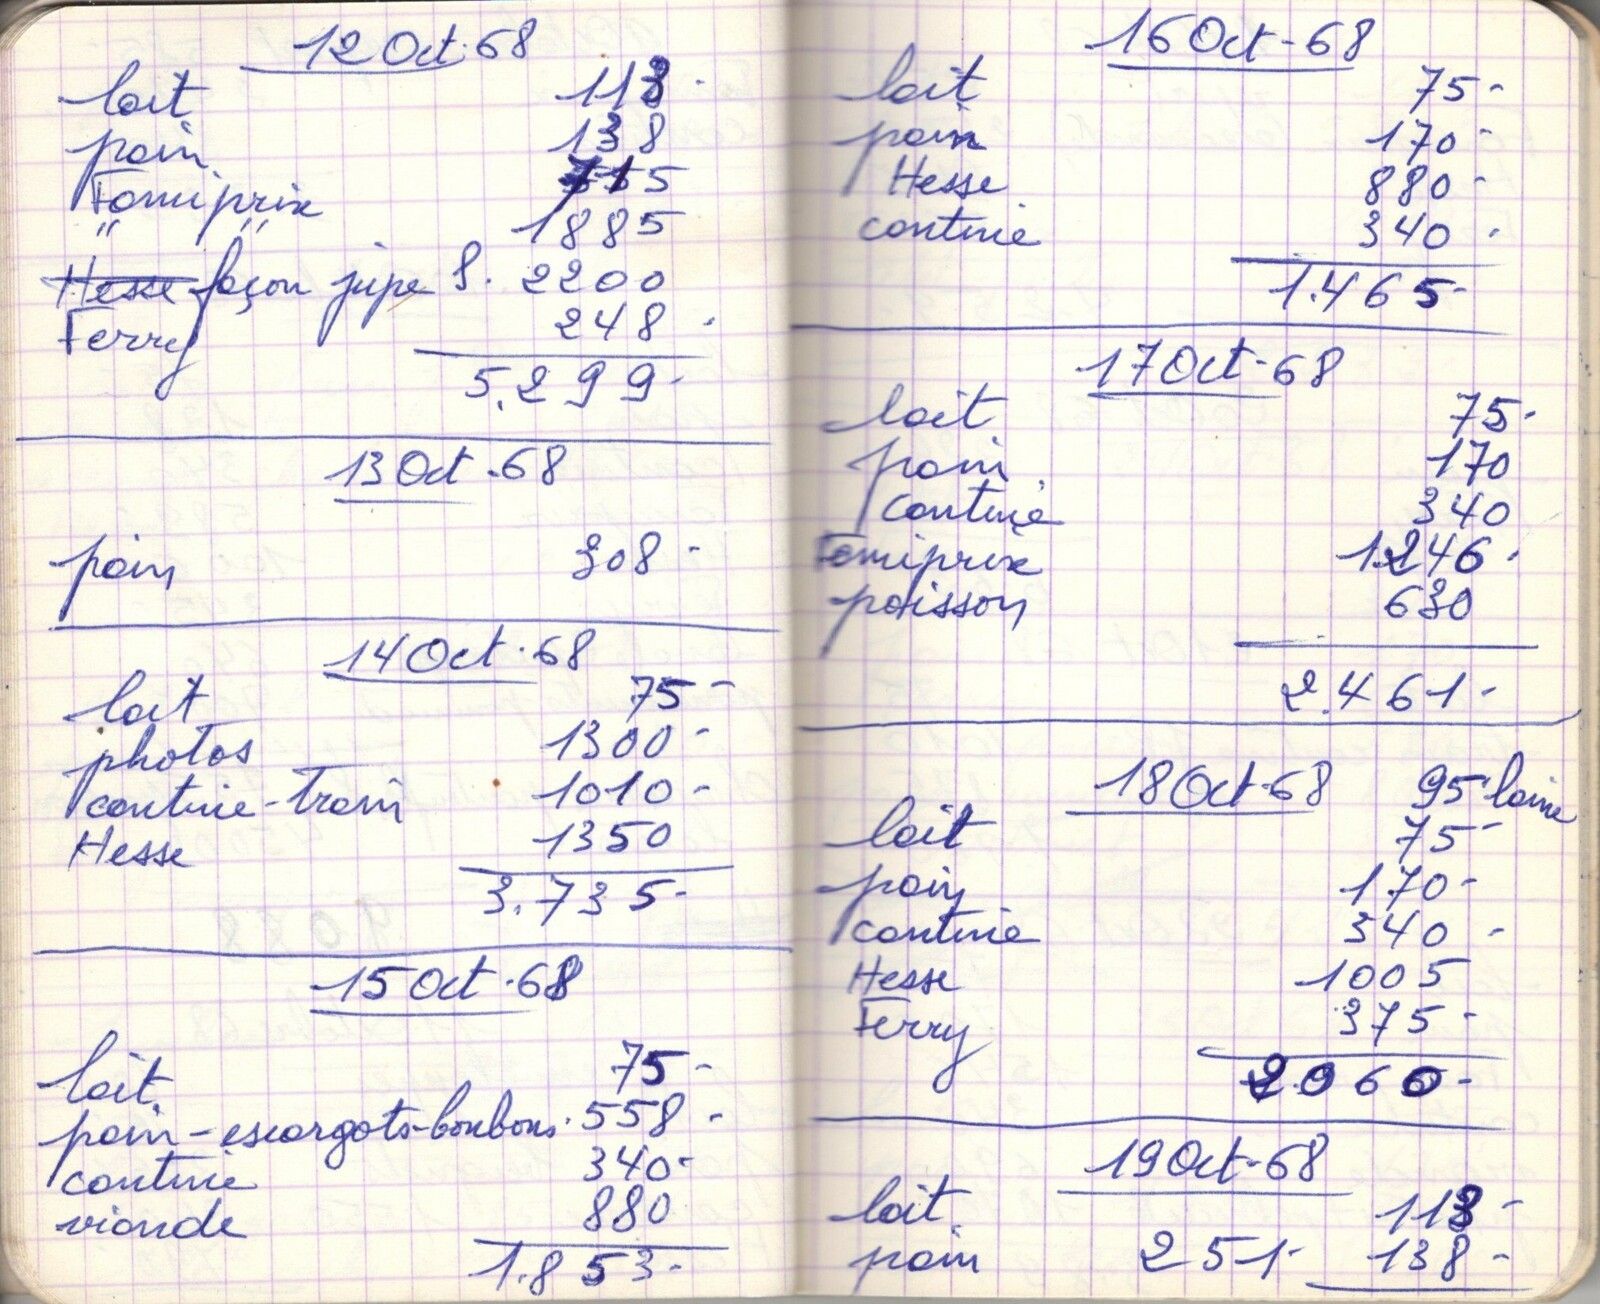 12 Oct. 68
lait 113 -
pain 138
Famiprix 715
" " 1885
Hesse façon jupe S. 2200
Ferry 248 -
5.299 -
13 Oct. 68
pain 308 -
14 Oct. 68
lait 75 -
photos 1300 -
cantine - train 1010 -
Hesse 1350
3.735 -
15 Oct. 68
lait 75 -
pain - escargots - bonbons. 558 -
cantine 340 -
viande 880
1.853 -
16 Oct - 68
lait 75 -
pain 170 -
Hesse 880 -
cantine 340 -
1.465 -
17 Oct - 68
lait 75 -
pain 170
cantine 340
Famiprix 1.246 -
poisson 630
2.461 -
18 Oct - 68 95 laine
lait 75 -
pain 170 -
cantine 340 -
Hesse 1005
Ferry 375 -
2.060 -
19 Oct - 68
lait 113 -
pain 251 - 138 -